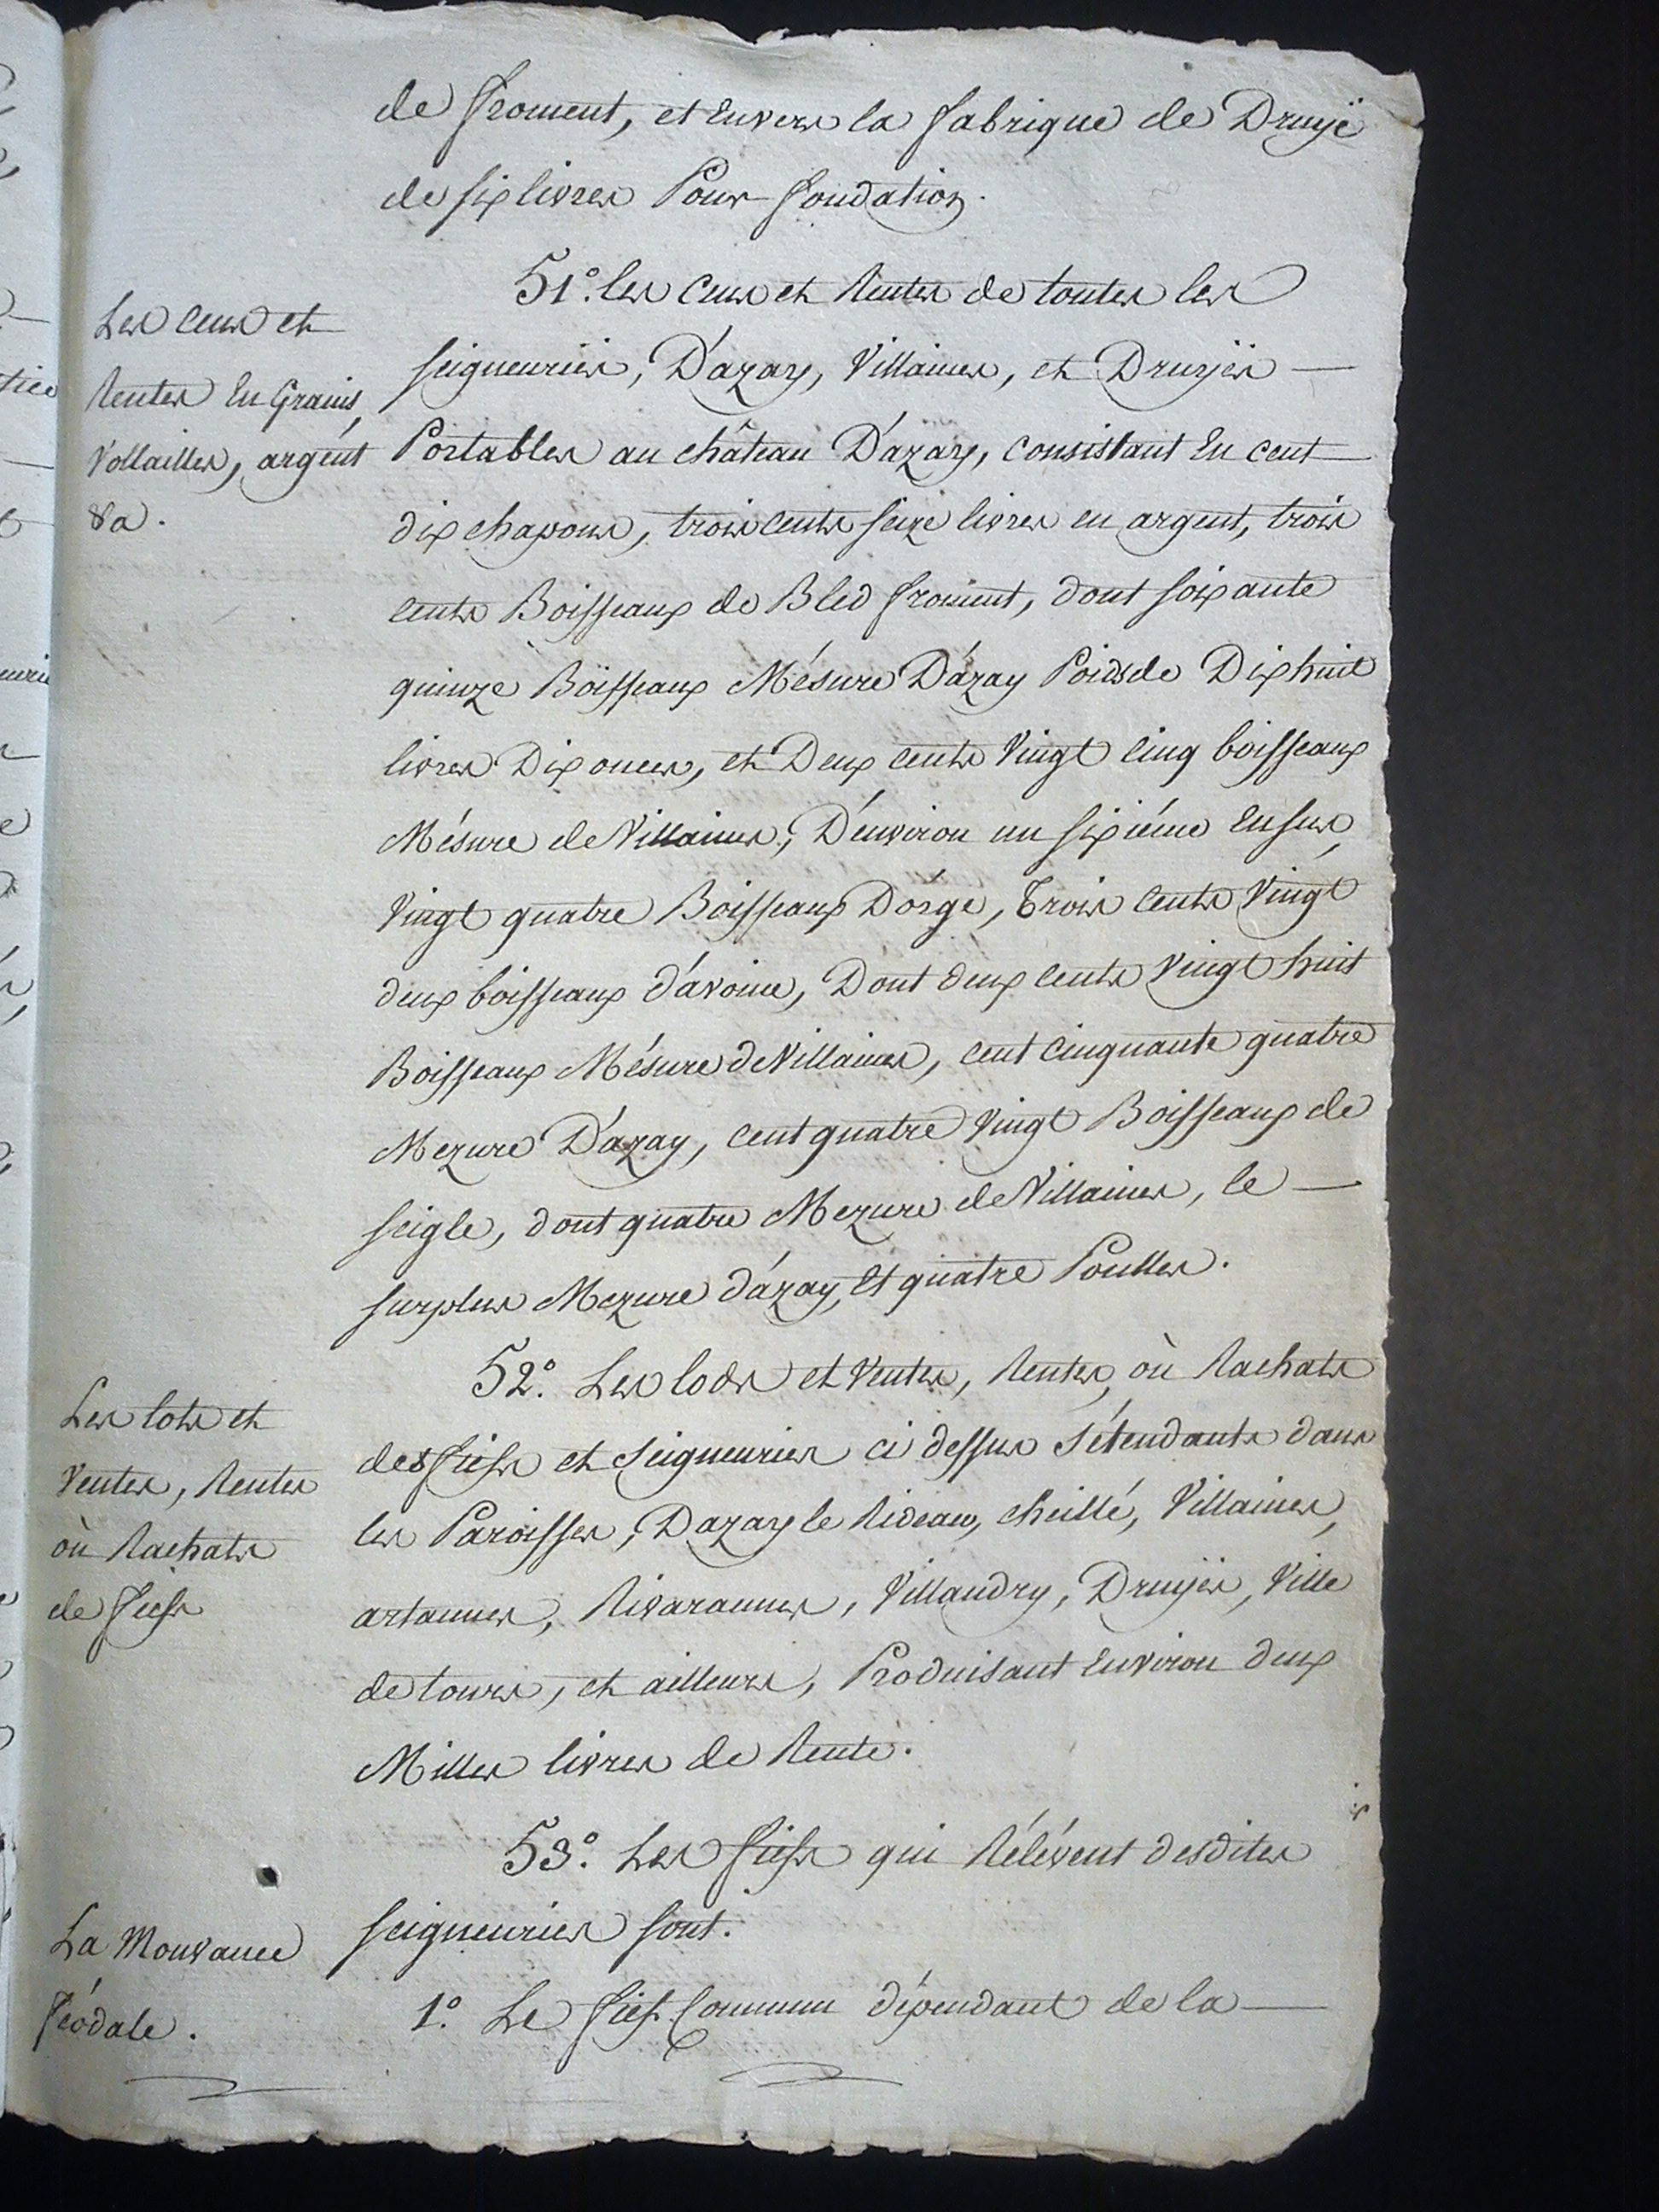 de froment, et Envers la fabrique de Druÿe
de six livres Pour fondation.
51.° les Cens et Rentes de toutes les
Les Cens et
Rentes En Grains,
Vollailles, argent
&a.
seigneuries, D'azay, Villaines, et Druÿes —
Portables au château D'azay, consistant En cent
dix chapons, trois cents seize livres en argent, trois
cents Boisseaux de Bled froment, dont soixante
quinze Boisseaux Mésure D'azay Poids de Dix huit
livres Dix onces, et Deux cents Vingt cinq boisseaux
Mésure de Villaines, D'environ un sixiéme En sus,
Vingt quatre Boisseaux D'orge, Trois Cents Vingt
deux boisseaux d'avoine, Dont deux cents Vingt huit
Boisseaux Mésure de Villaines, cent cinquante quatre
Mezure D'azay, cent quatre Vingt Boisseaux de
seigle, dont quatre Mezure de Villaines, le —
surplus Mezure d'azay, Et quatre Poulles.
52.° Les lods et Ventes, Rentes, où Rachats
Les lots et
Ventes, Rentes
où Rachats
de fiefs
des fiefs et Seigneuries ci dessus s'étendants dans
les Paroisses, D'azay le Rideau, cheillé, Villaines,
artannes, Rivarannes, Villandry, Druÿes, Ville
de tours, et ailleurs, Produisant Environ deux
Milles livres de Rente.
53.° Les fiefs qui Rélévent desdites
seigneuries sont.
La Mouvance
féodale.
1.° Le fief Commun dépendant de la —